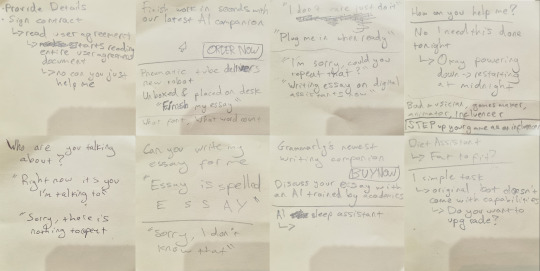 Provide Details
Sign contract
↳ read user agreement
↳ starts reading
entire user agreement
document
↳ no can you just
help me
Finish work in seconds with
our latest AI companion
ORDER NOW
Pneumatic tube delivers
new robot
Unboxed & placed on desk
"Finish my essay"
what part, what word count
"I don't care just do it"
"Plug me in when ready"
"I'm sorry, could you
repeat that?"
"Writing essay on digital
assistant
How can you help me?
No I need this done
tonight
↳ Okay powering
down → restoring
at midnight
Bad musician, games maker,
animator, influencer
STEP up your game as an influencer
Who are you talking
about?
"Right now it's you
I'm talking to"
"Sorry, there is
nothing to
Can you writing
essay for me
"Essay is spelled
E S S A Y"
"Sorry, I don't
know that"
Grammarly's newest
writing companion
BUY NOW
Discuss your essay with
an AI trained by academics
AI sleep assistant
↳
Diet Assistant
↳ Fat to fit?
1 simple task
↳ original bot doesn't
come with capabilities
↳ Do you want to
upgrade?